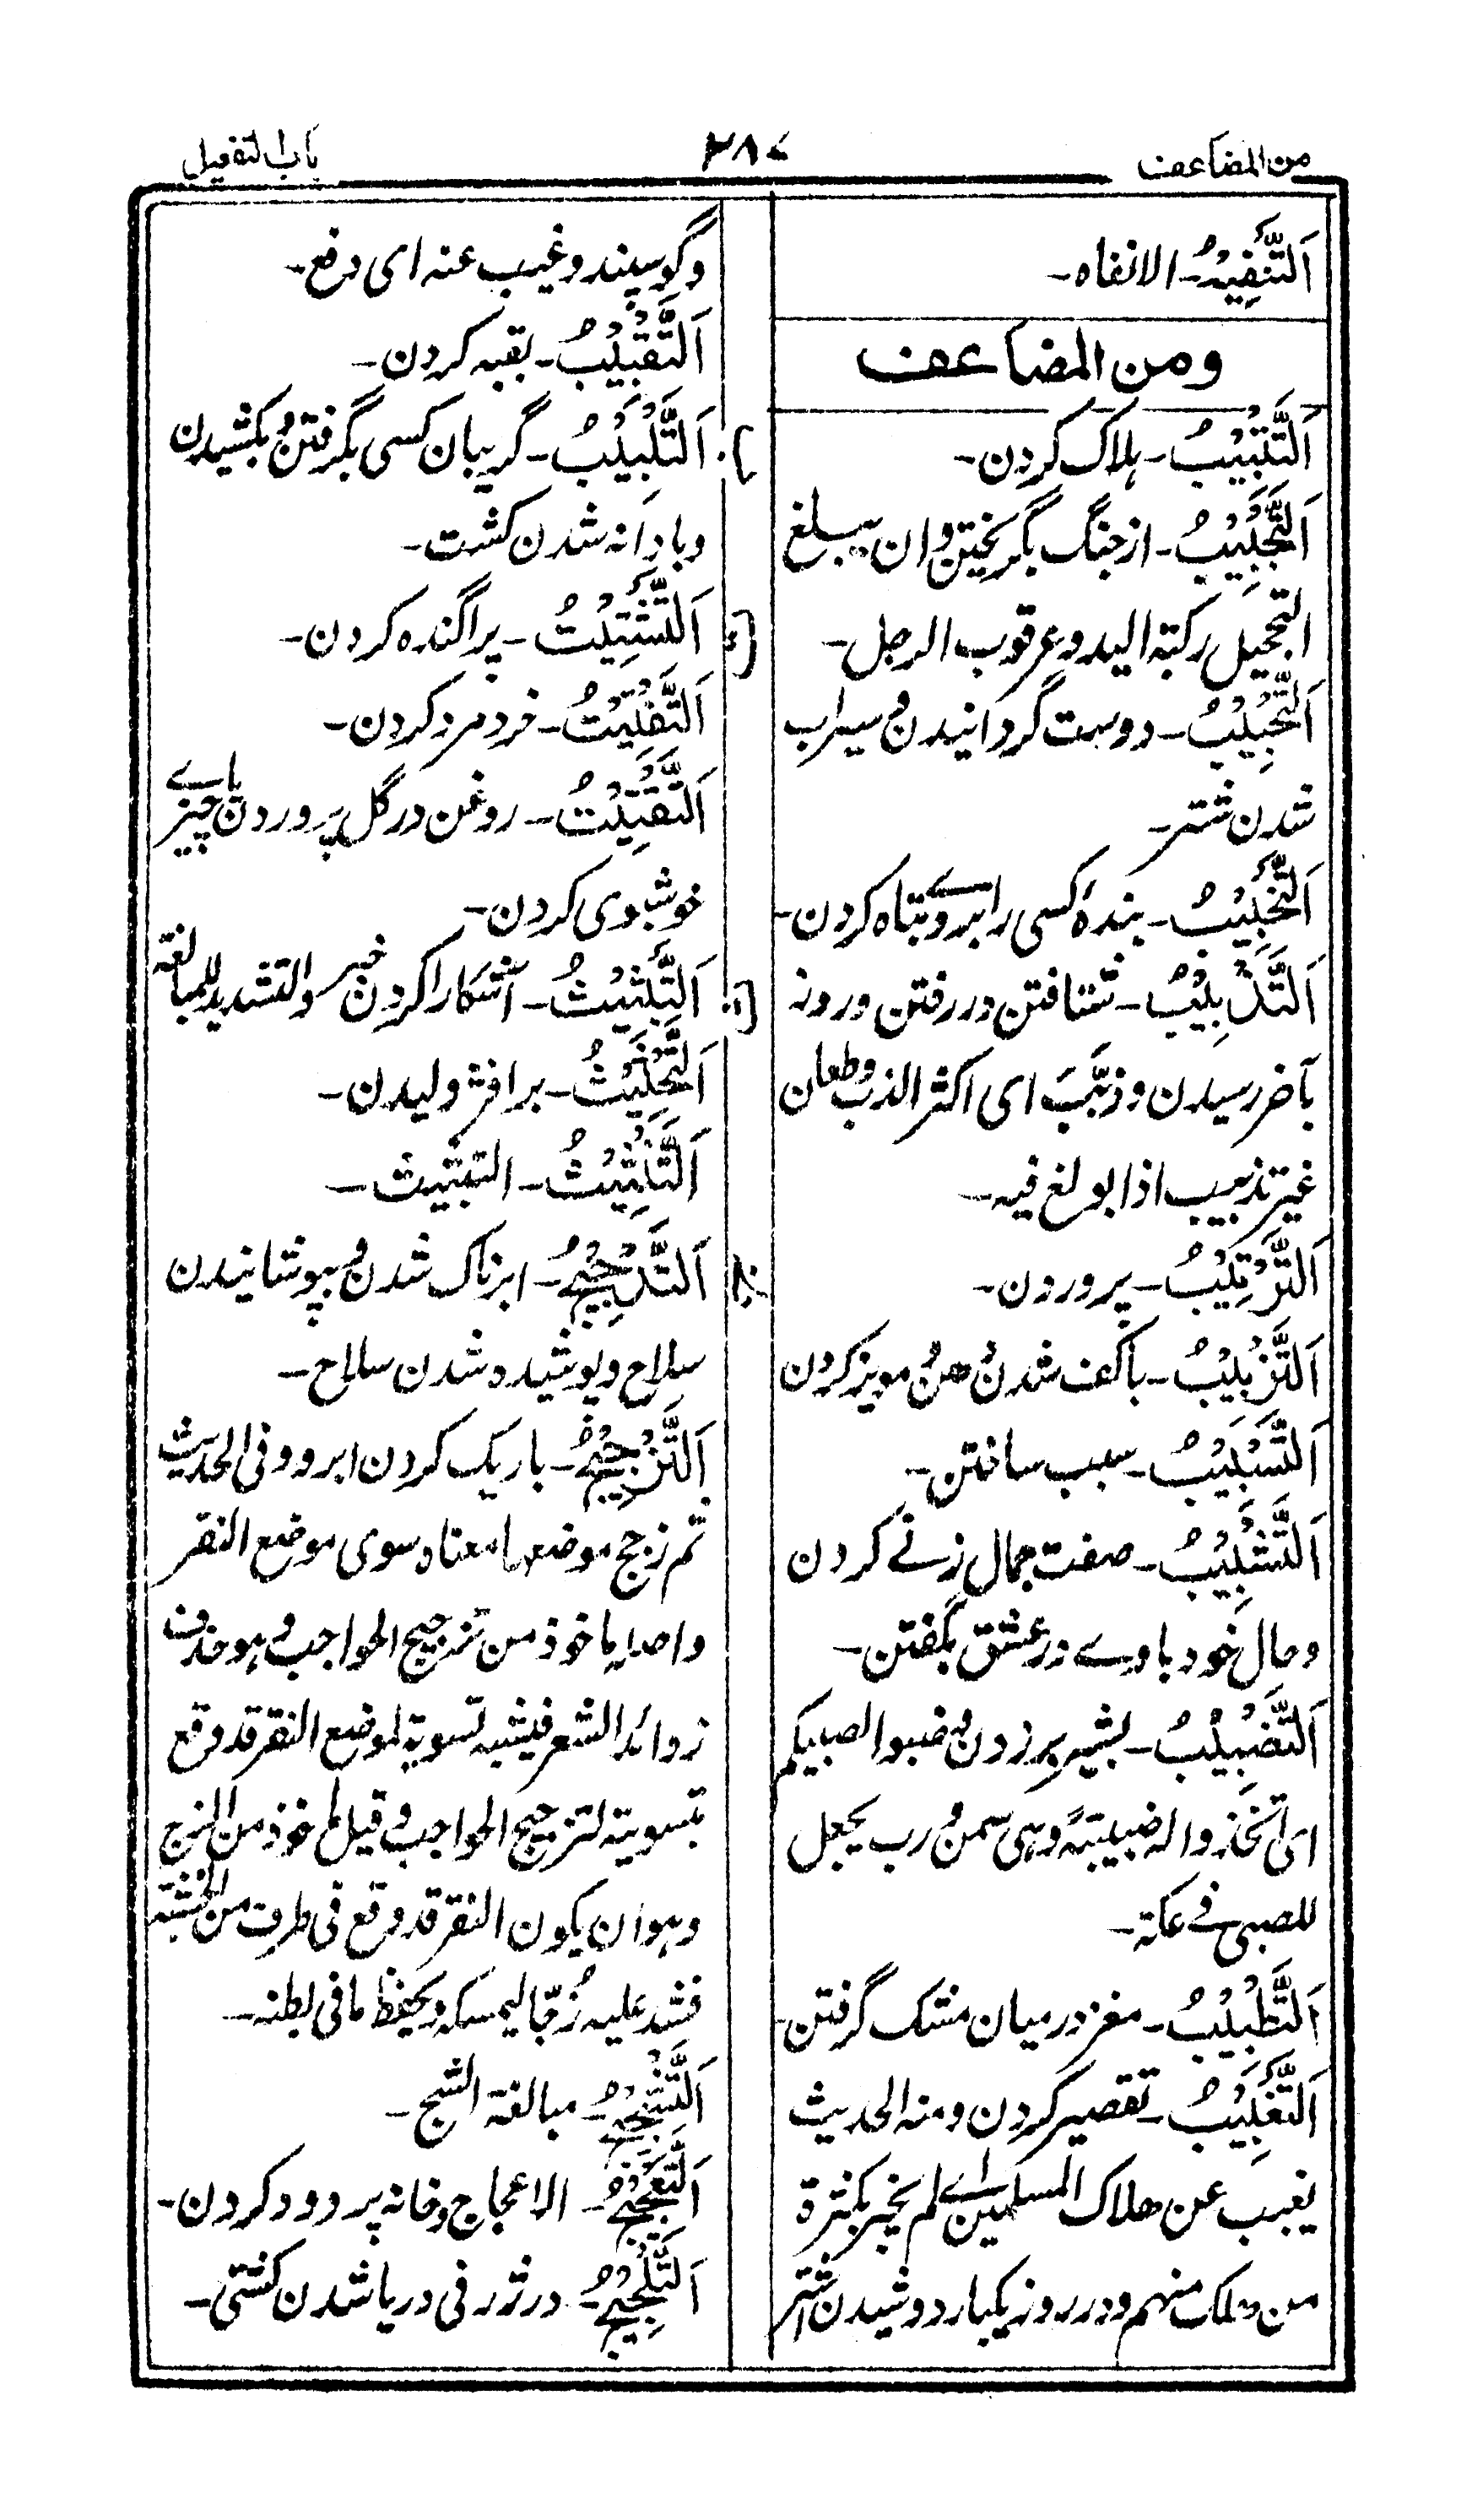 من المضاعف
٣٨٧
باب التفعیل
اَلتَّنْفِیْهُ۔ الانفاه۔
ومن المضاعف
اَلتَّتْبِیْبُ۔ ہلاک کردن۔
اَلتَّجْبِیْبُ۔ از جنگ بگریختن و ان یبلغ
التحجیل رکبة الید و عرقوب الرجل۔
اَلتَّحْبِیْبُ۔ دوست گردانیدن و سیراب
شدن شتر۔
اَلتَّخْبِیْبُ۔ بندهٔ کسی را بروے تباه کردن۔
اَلتَّذْبِیْبُ۔ شتافتن در رفتن و روز
بآخر رسیدن و ذبَّبَ ای اکثر الذب و طعان
غیر تذبیب اذا بولغ فیه۔
اَلتَّرْبِیْبُ۔ پروردن۔
اَلتَّزْبِیْبُ۔ باکف شدن دهن و مویز کردن
اَلتَّسْبِیْبُ۔ سبب ساختن۔
اَلتَّشْبِیْبُ۔ صفت جمال زنے کردن
و حال خود باوے در عشق بگفتن۔
اَلتَّضْبِیْبُ۔ بشمیر بر زدن و ضببوا لصبیکم
ای اتخذوا له ضبیبةً وهی سمن و رب یجعل
للصبی فے عکة۔
اَلتَّطْبِیْبُ۔ مغز درمیان مشک گرفتن۔
اَلتَّغْبِیْبُ۔ تقصیر کردن و منه الحدیث
یغبب عن هلاک المسلمین اے لم یخبر بکثرة
من هلک منهم و در روز یکبار دوشیدن اشتر
و گوسپند و غیب عنه ای دفع۔
اَلتَّقْبِیْبُ۔ بقبه کردن۔
اَلتَّلْبِیْبُ۔ گریبان کسی بگرفتن و بکشیدن
و با دانه شدن کشت۔
اَلتَّشْتِیْتُ۔ پراگنده کردن۔
اَلتَّفْتِیْتُ۔ خرد مرد کردن۔
اَلتَّقْتِیْتُ۔ روغن در گل پروردن یا بے چیزے
خوشبوی کردن۔
اَلتَّبْثِیْثُ۔ آشکارا کردن خبر و التشدید للمبالغة
اَلتَّحْثِیْثُ۔ برافژولیدن۔
اَلتَّنْثِیْثُ۔ التبثیث۔
اَلتَّدْجِیْجُ۔ ابرناک شدن و بپوشانیدن
سلاح و پوشیده شدن سلاح۔
اَلتَّزْجِیْجُ۔ باریک کردن ابرو و فی الحدیث
ثم زجج موضعها معناه سوی موضع النقر
و اصله ماخوذ من تزجیج الحواجب و هو حذف
زوائد الشعر فیشبه تسویة لموضع النقر قد وقع
بتسویته لتزجیج الحواجب و قیل ماخوذ من الزج
و هو ان یکون النقر قد وقع فی طرف من الخشبة
فشد علیه زُجّا لیمسکه و یحفظ ما فی بطنه۔
اَلتَّشْجِیْجُ۔ مبالغة الشج۔
اَلتَّعْجِیْجُ۔ الاعجاج و خانه پر دود کردن۔
اَلتَّلْجِیْجُ۔ در ژرفی دریا شدن کشتی۔